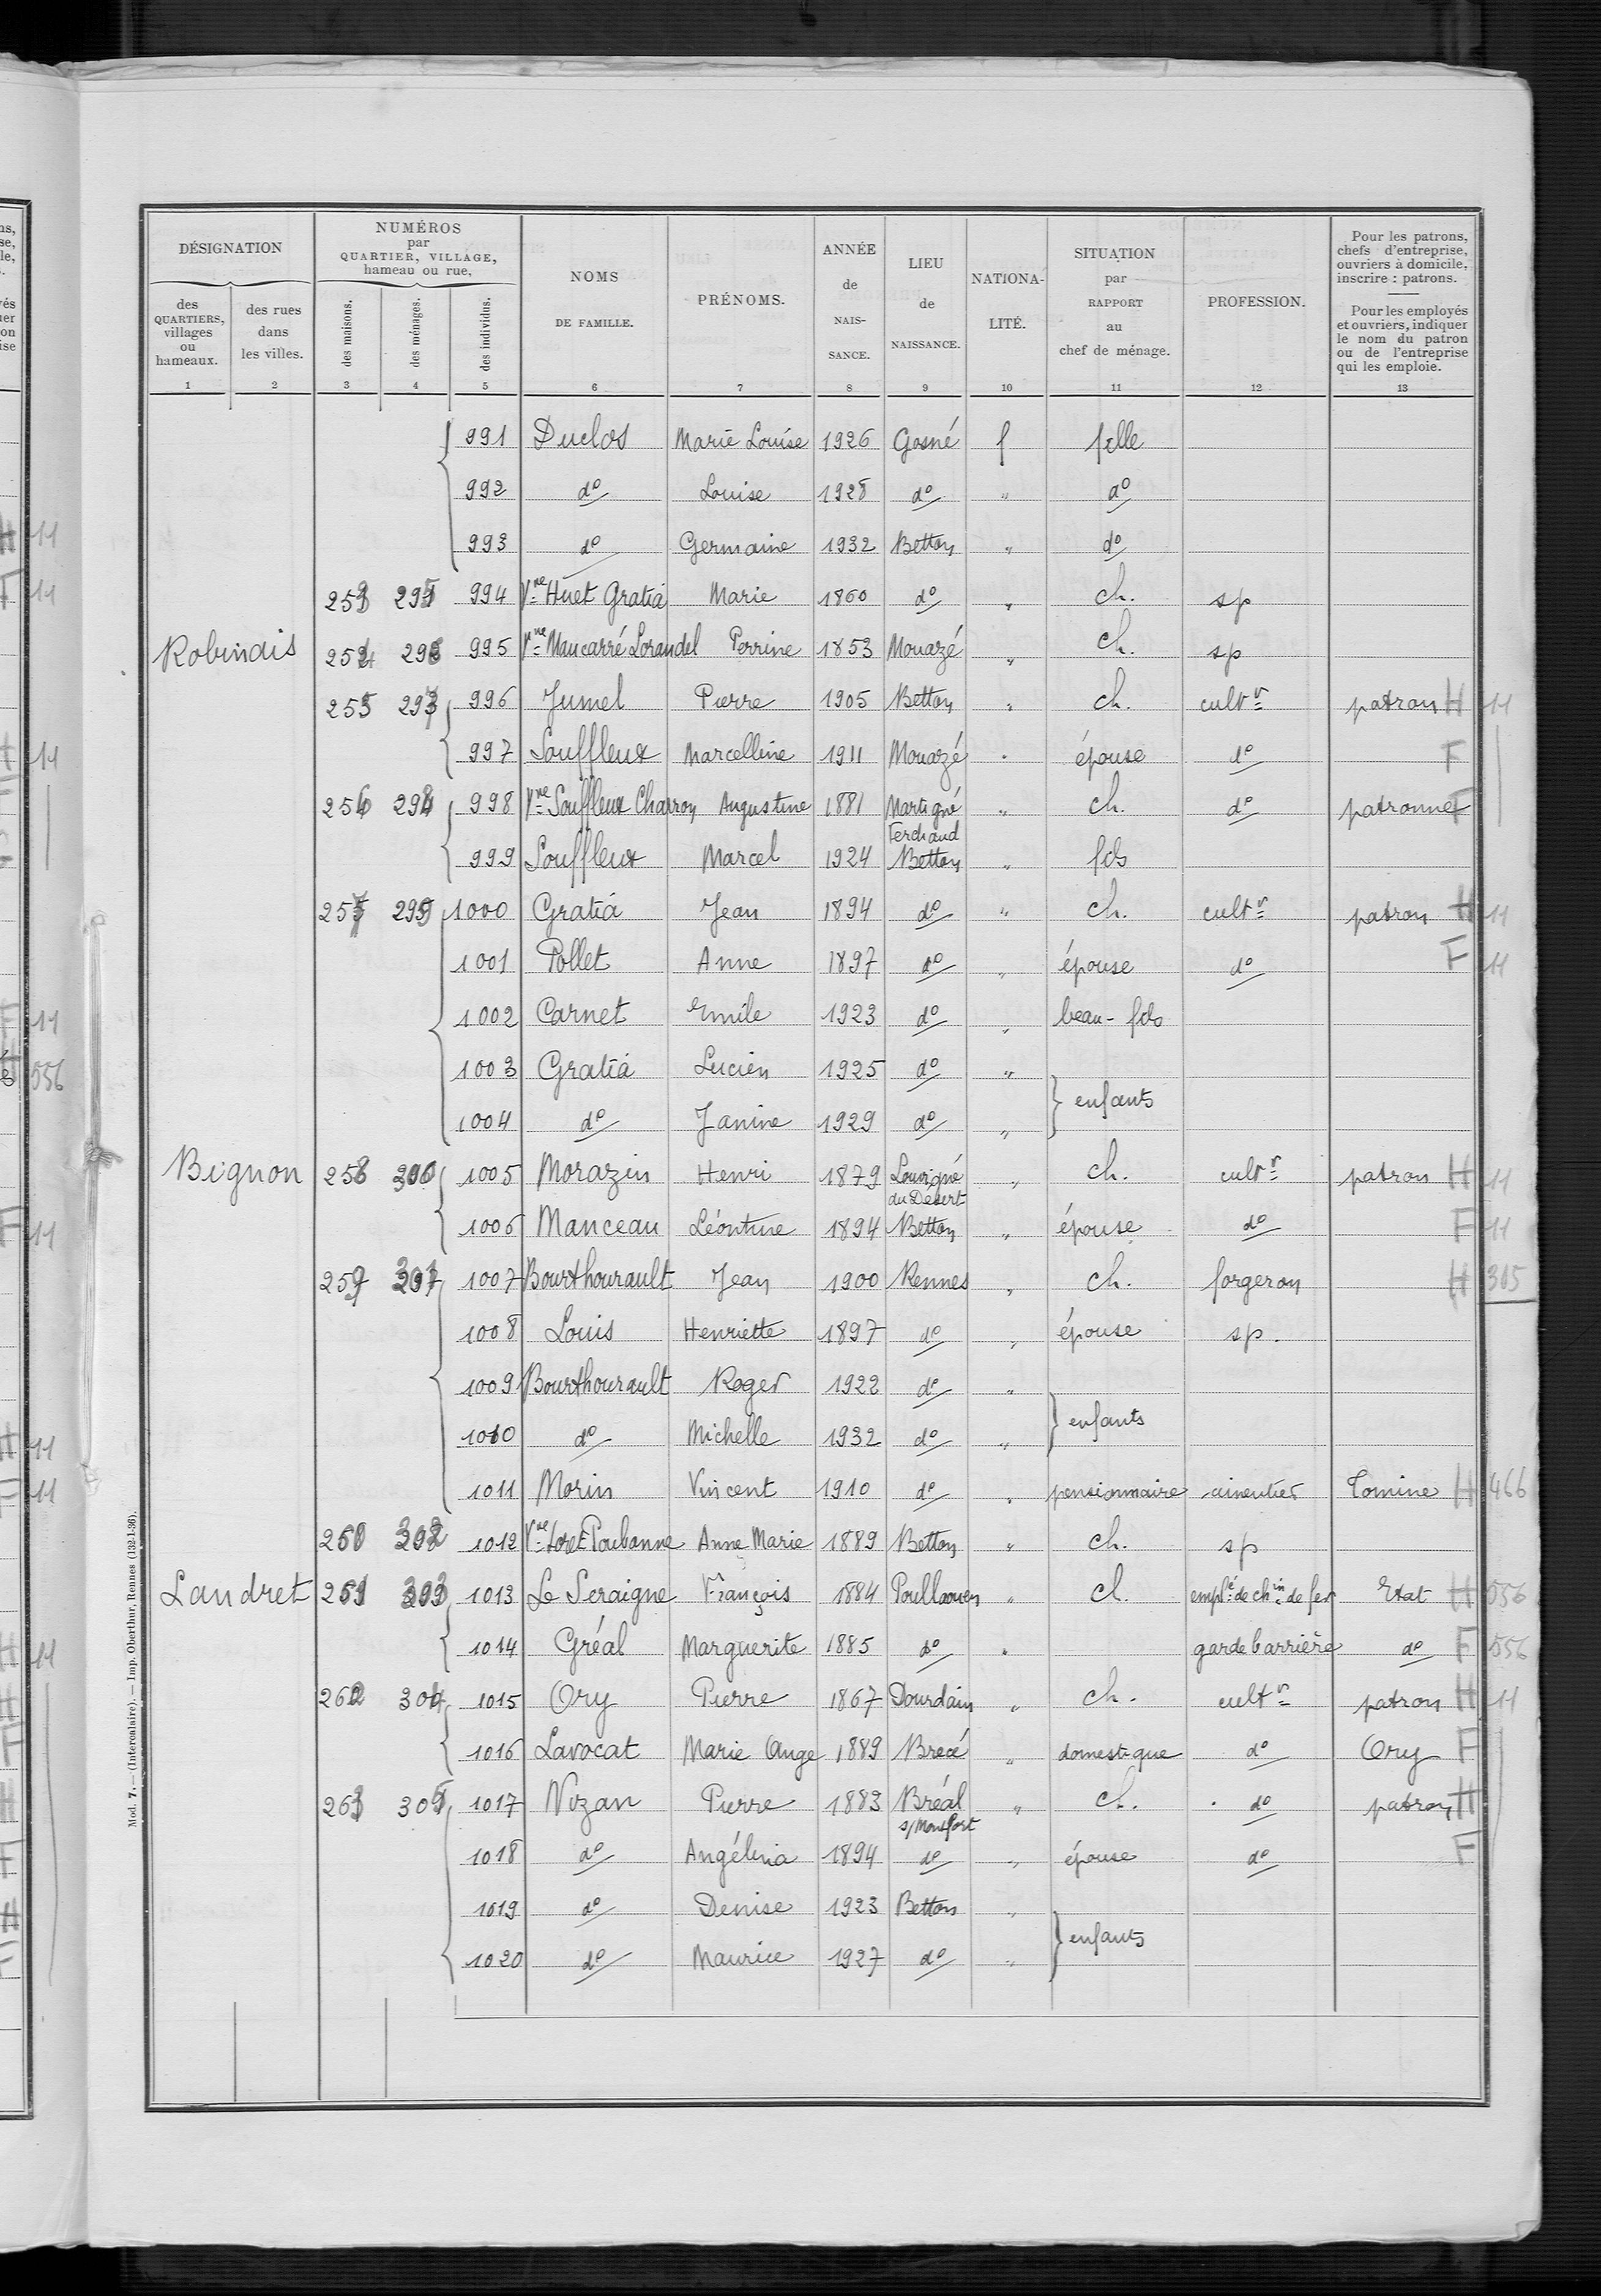 DÉSIGNATION
des QUARTIERS, villages ou hameaux.
des rues dans les villes.
NUMÉROS par QUARTIER, VILLAGE, hameau ou rue,
des maisons.
des ménages.
des individus.
NOMS DE FAMILLE.
PRÉNOMS.
ANNÉE de NAIS-SANCE.
LIEU de NAISSANCE.
NATIONA-LITÉ.
SITUATION par RAPPORT au chef de ménage.
PROFESSION.
Pour les patrons, chefs d'entreprise, ouvriers à domicile, inscrire : patrons.
Pour les employés et ouvriers, indiquer le nom du patron ou de l'entreprise qui les emploie.
1 2 3 4 5 6 7 8 9 10 11 12 13
991 Duclos Marie Louise 1926 Gosné f fille
992 do Louise 1928 do " do
993 do Germaine 1932 Betton " do
253 295 994 Vve Huet Gratiá Marie 1860 do " ch. sp
Robinais 254 296 995 Vve Maucarré Lorandel Perrine 1853 Mouazé " ch. sp
255 297 996 Jumel Pierre 1905 Betton " ch. cultr patron H 11
997 Souffleux Marcelline 1911 Mouazé " épouse do F
256 298 998 Vve Souffleux Charron Augustine 1881 Martigné Ferchaud " ch. do patronne F
999 Souffleux Marcel 1924 Betton " fils
257 299 1000 Gratiá Jean 1894 do " ch. cultr patron H 11
1001 Pollet Anne 1897 do " épouse do F 11
1002 Carnet Emile 1923 do " beau-fils
1003 Gratiá Lucien 1925 do " enfants
1004 do Janine 1929 do "
Bignon 258 300 1005 Morazin Henri 1879 Louvigné du Désert " ch. cultr patron H 11
1006 Manceau Léontine 1894 Betton " épouse do F 11
259 301 1007 Bourthourault Jean 1900 Rennes " ch. forgeron H 305
1008 Louis Henriette 1897 do " épouse sp.
1009 Bourthourault Roger 1922 do " enfants
1010 do Michelle 1932 do "
1011 Morin Vincent 1910 do " pensionnaire Tomine H 466
260 302 1012 Vve Loret Poubanne Anne Marie 1889 Betton " ch. sp
Landret 261 303 1013 Le Seraigne François 1884 Poullaouen " ch. emplé de chin de fer Etat H 556
1014 Gréal Marguerite 1885 do " garde barrière do F 556
262 304 1015 Ory Pierre 1867 Dourdain " ch. cultr patron H 11
1016 Lavocat Marie Ange 1889 Brecé " domestique do Ory F
263 305 1017 Nozan Pierre 1883 Bréal s/Montfort " ch. do patron H
1018 do Angélina 1894 do " épouse do F
1019 do Denise 1923 Betton " enfants
1020 do Maurice 1927 do "
Mod. 7. — (Intercalaire). — Imp. Oberthur, Rennes (132-1-36).